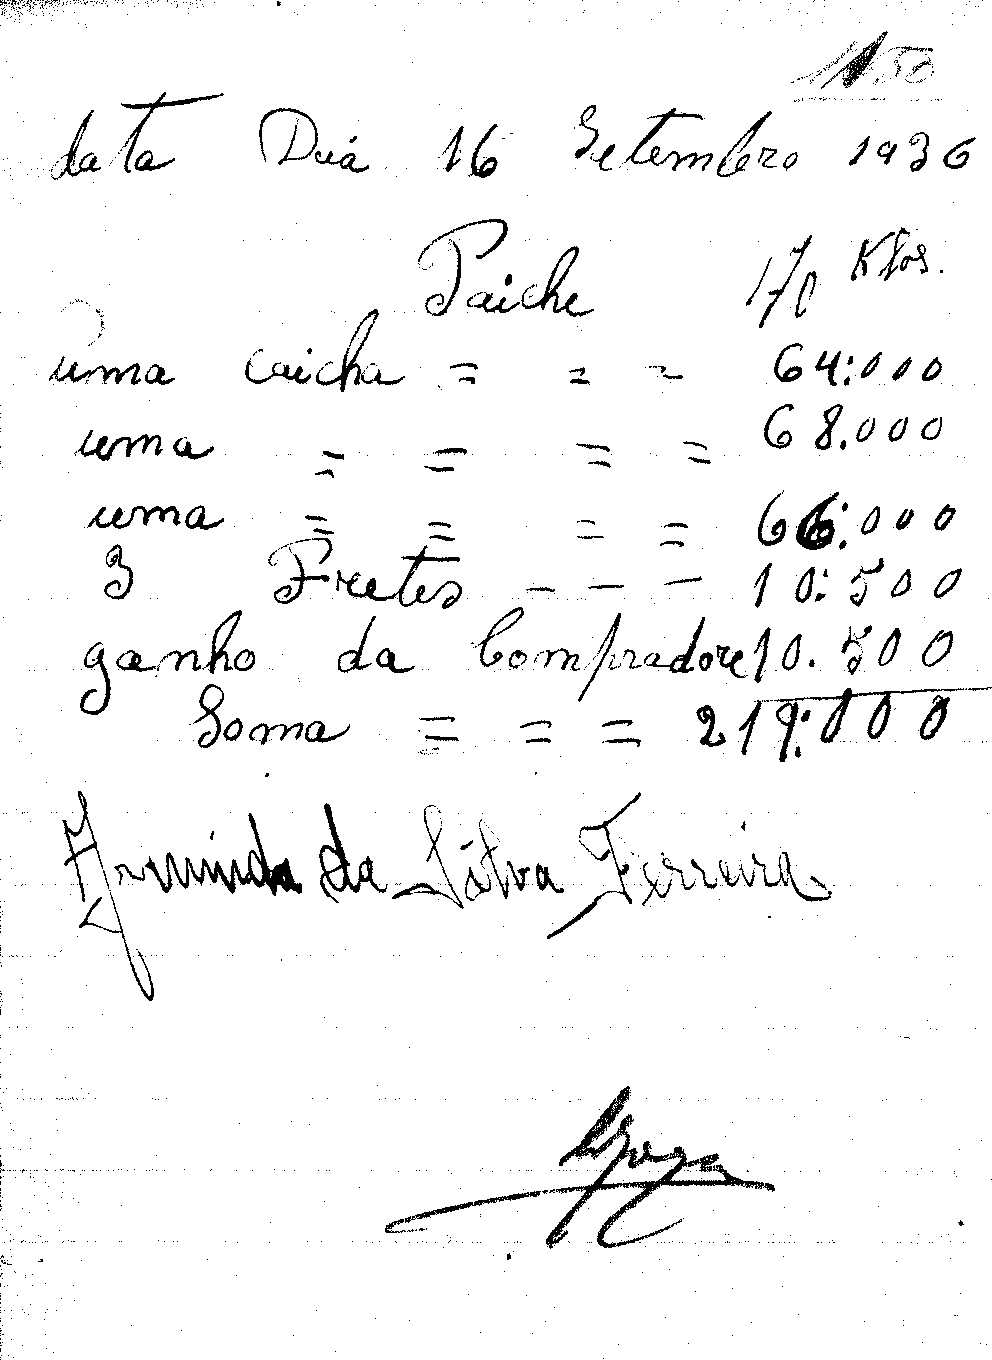 data Diá 16 Setembro 1936
Paiche 170 Klos.
uma caicha = = = 64:000
uma = = = = 68.000
uma = = = = 66:000
3 Fretes - - - 10:500
ganho da Compradore 10.500
Soma = = = 219:000
Arminda da Silva Ferreira